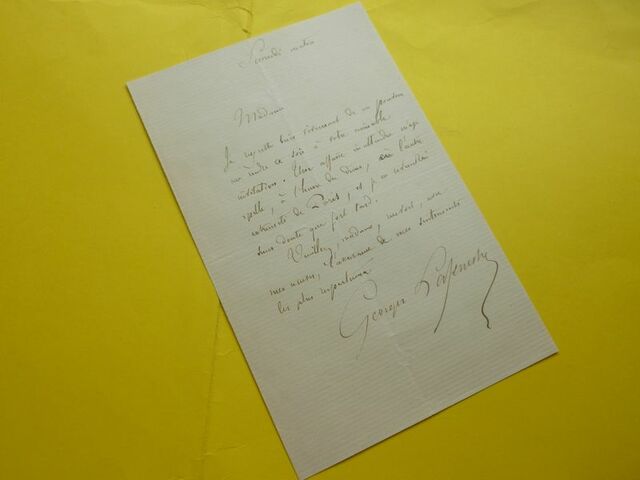 Samedi matin
Madame
Je regrette bien vivement de ne pouvoir
me rendre ce soir à votre aimable
invitation. Une affaire inattendue m'ap
pelle, à l'heure du dîner, à l'autre
extrémité de Paris, et je en reviendrai
sans doute que fort tard.
Veuillez, madame, recevoir, avec
mes excuses, l'assurance de mes sentiments
les plus respectueux
Georges Lafenestre